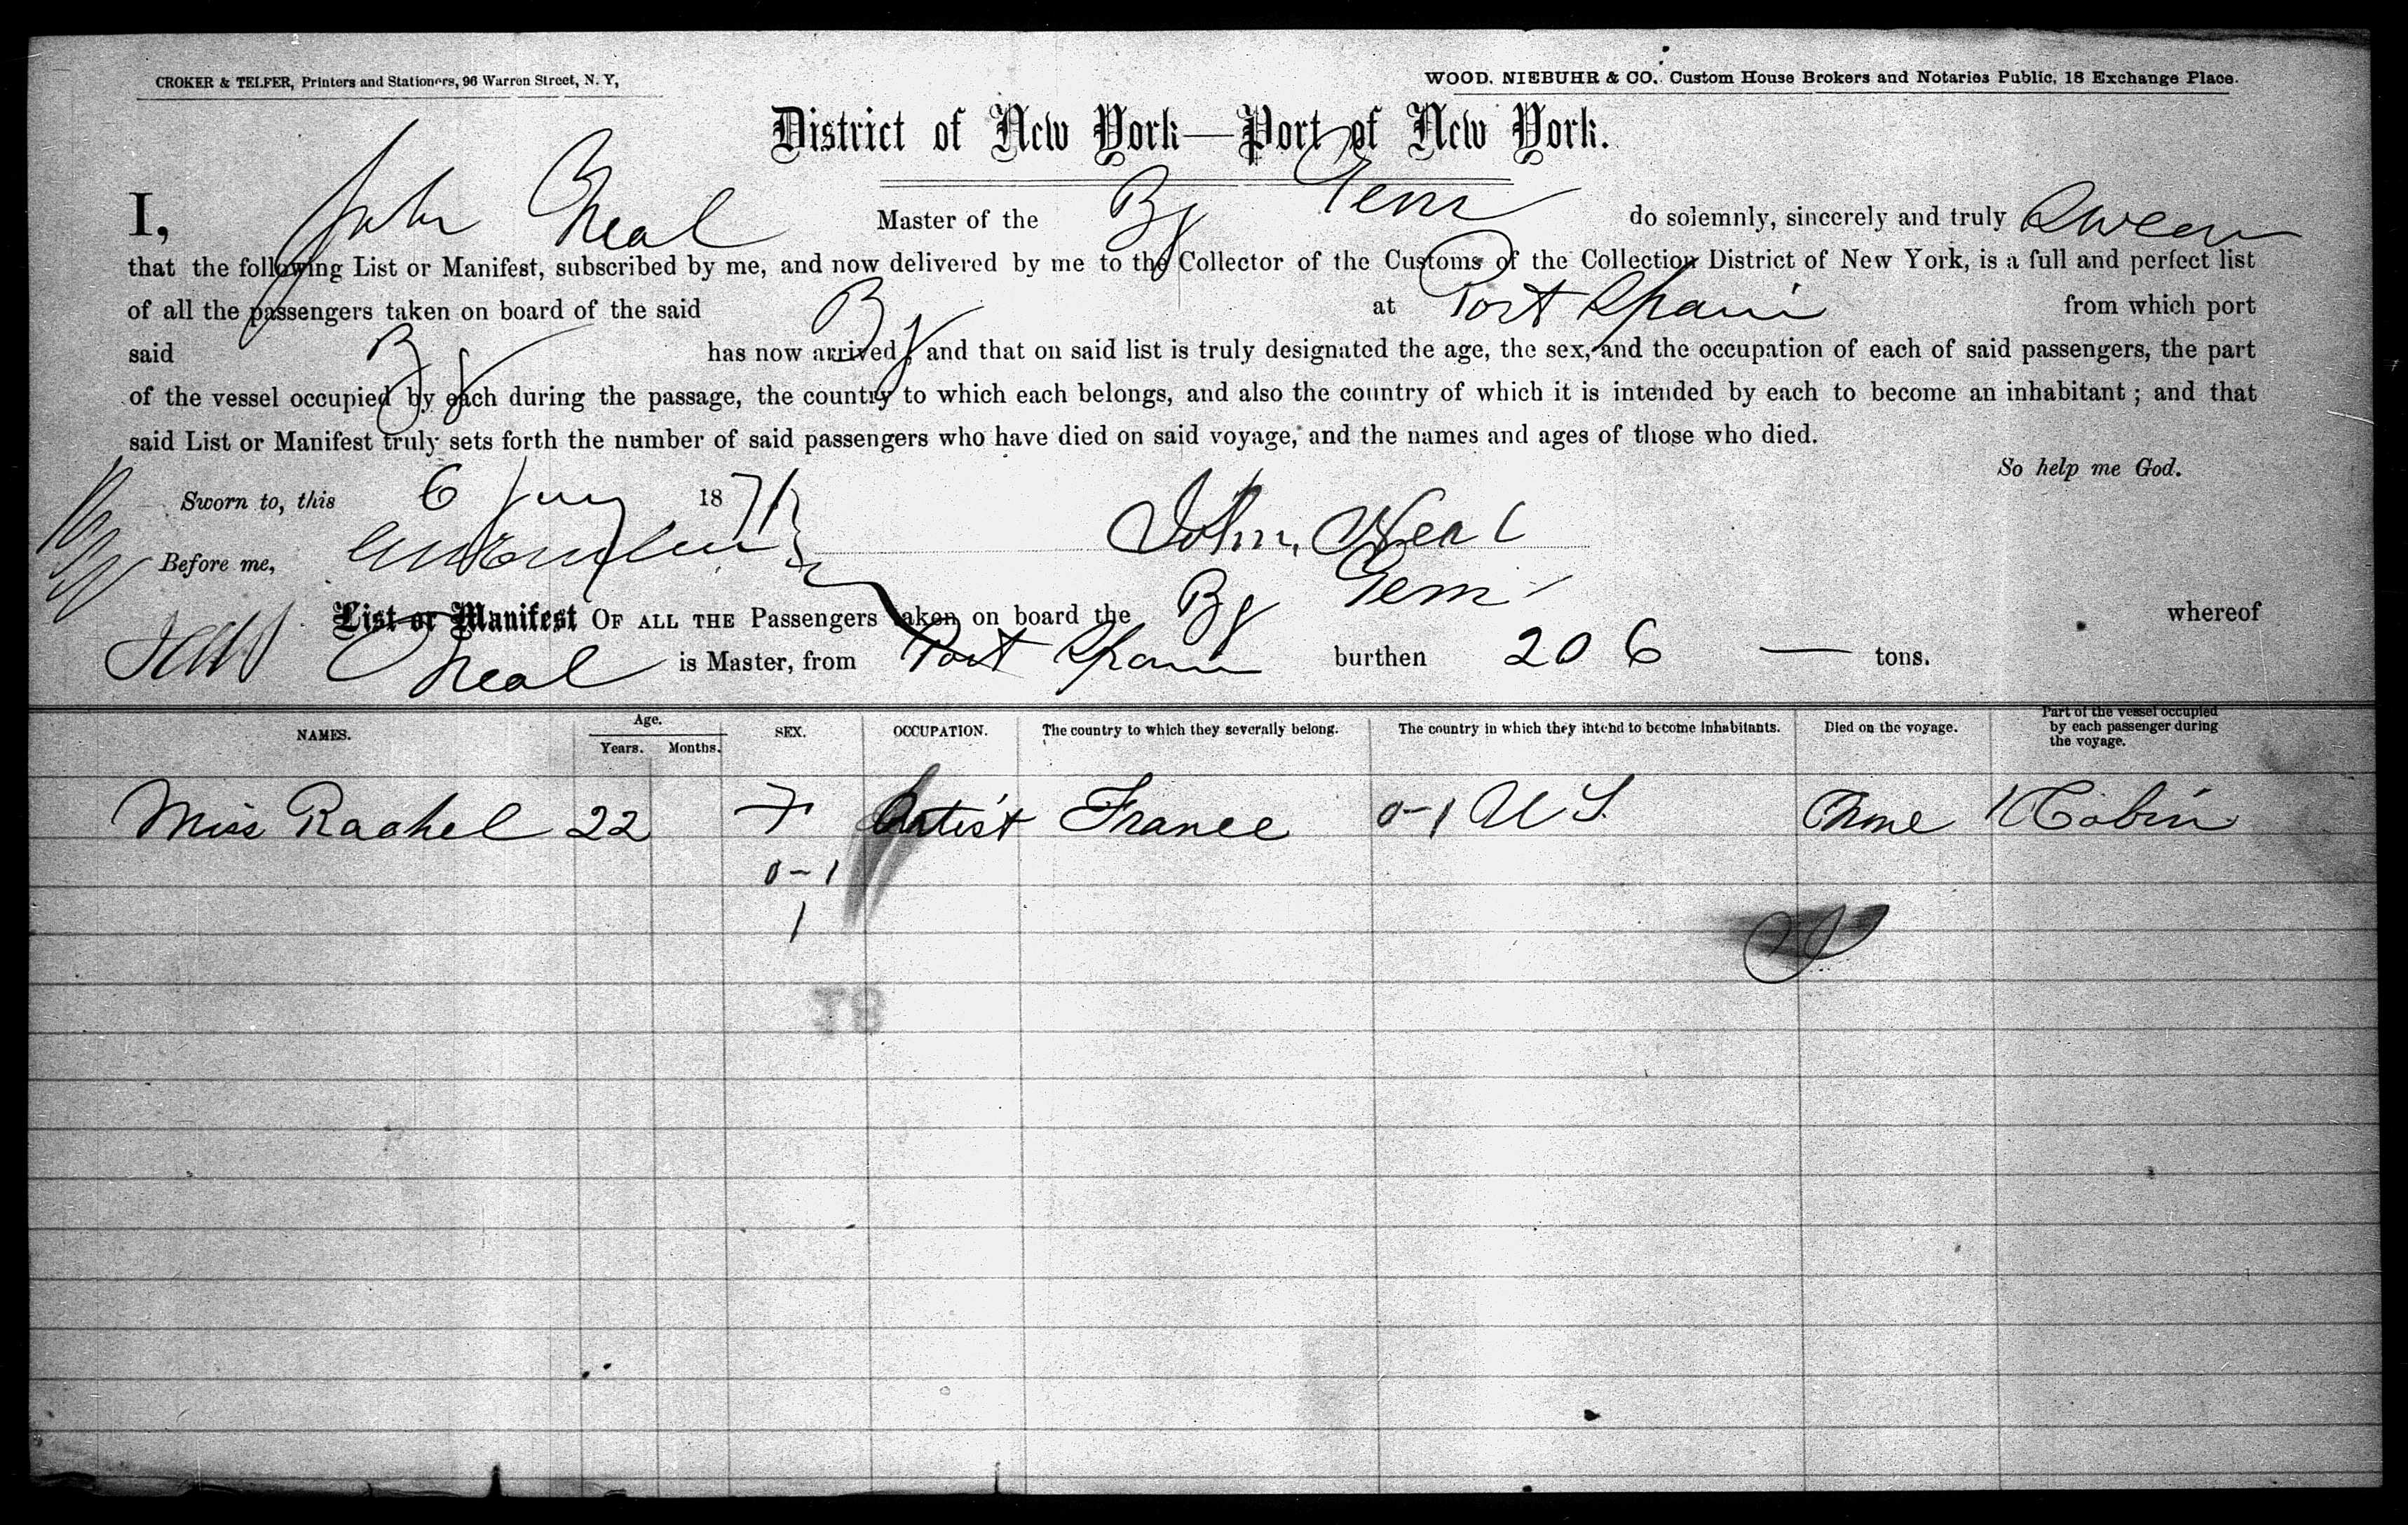 CROKER & TELFER, Printers and Stationers, 96 Warren Street, N. Y,
WOOD. NIEBUHR & CO. Custom House Brokers and Notaries Public, 18 Exchange Place.
District of New York—Port of New York.
I, John Neal Master of the Bg Gem do solemnly, sincerely and truly Swear
that the following List or Manifest, subscribed by me, and now delivered by me to the Collector of the Customs of the Collection District of New York, is a full and perfect list
of all the passengers taken on board of the said Bg at Port Spain from which port
said Bg has now arrived; and that on said list is truly designated the age, the sex, and the occupation of each of said passengers, the part
of the vessel occupied by each during the passage, the country to which each belongs, and also the country of which it is intended by each to become an inhabitant; and that
said List or Manifest truly sets forth the number of said passengers who have died on said voyage, and the names and ages of those who died.
So help me God.
Sworn to, this 6 1871
John Neal
Before me,
List or Manifest OF ALL THE Passengers taken on board the Bg Gem whereof
Neal is Master, from Port Spain burthen 206 — tons.
NAMES. Age. Years. Months. SEX. OCCUPATION. The country to which they severally belong. The country in which they intend to become inhabitants. Died on the voyage. Part of the vessel occupied by each passenger during the voyage.
Miss Rachel 22 F Artist France 0-1 U S. None 1 Cabin
0-1
1